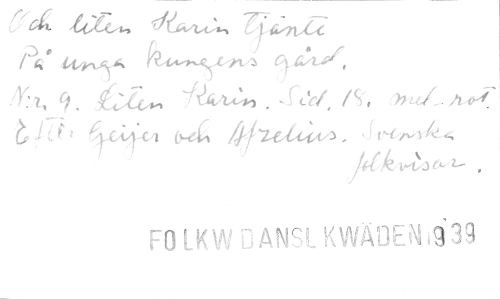 Och liten Karin tjänte
På unga kungens gård.
N:r 9. Liten Karin. Sid. 18. met. not.
Efter Geijer och Afzelius. Svenska
folkvisor.
FOLKW DANSL KWÄDEN 1939